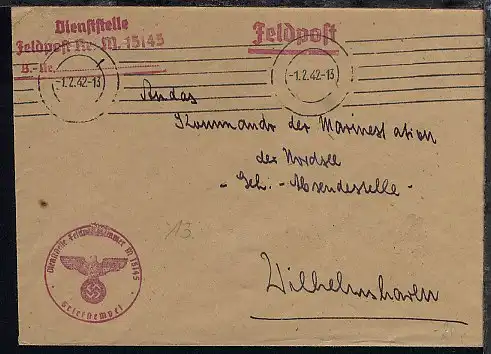 Dienststelle
Feldpost Nr. M. 15145
B.-Nr.
Feldpost
-1.2.42-13
-1.2.42-13
An das
Kommando der Marinestation
der Nordsee
- Geh. - Absendestelle -
13.
Wilhelmshaven
Dienststelle Feldpostnummer M 15145
Briefstempel